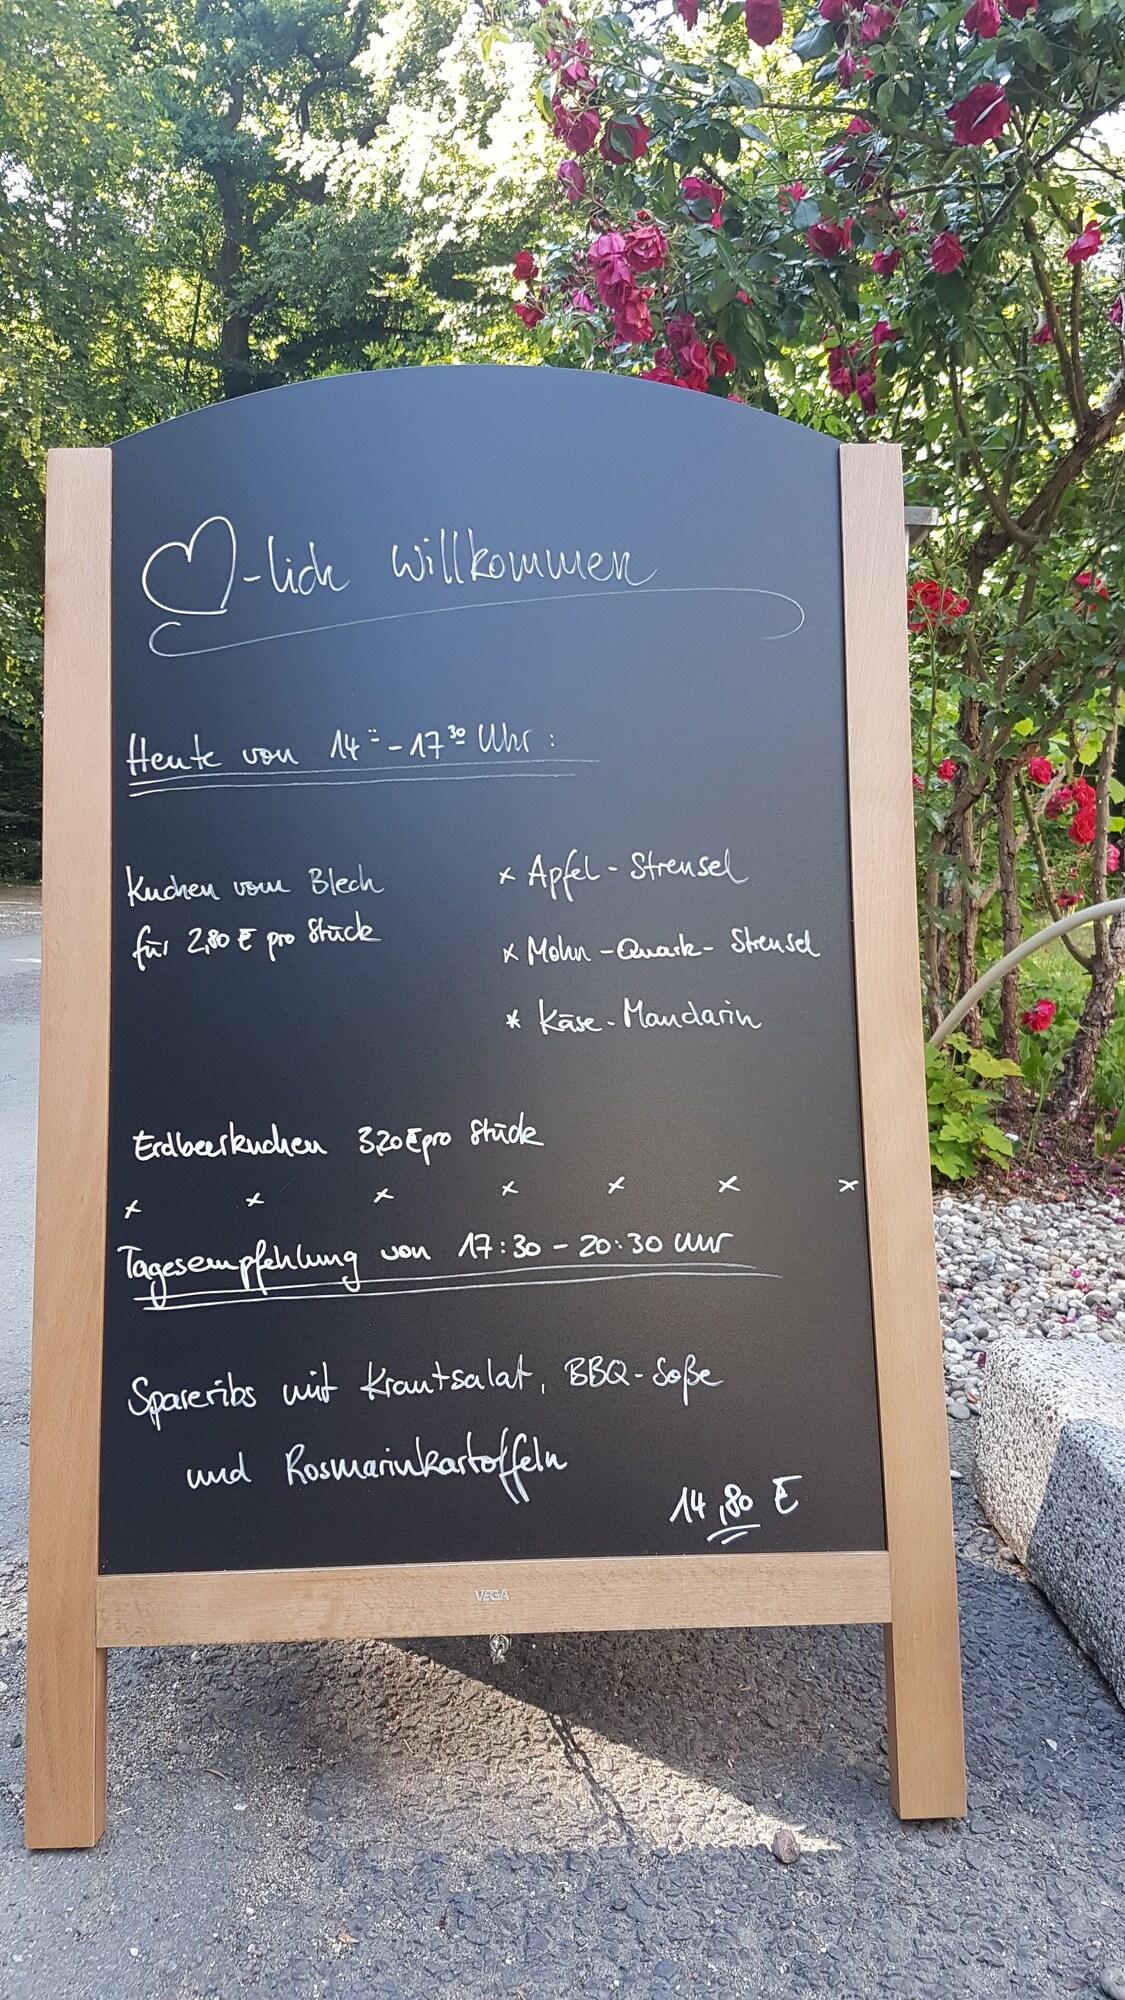 ♡-lich Willkommen
Heute von 14:00 - 17:30 Uhr:
Kuchen vom Blech
für 2,80 € pro Stück
x Apfel-Streusel
x Mohn-Quark-Streusel
* Käse-Mandarin
Erdbeerkuchen 3,20 € pro Stück
x x x x x x x
Tagesempfehlung von 17:30 - 20:30 Uhr
Spareribs mit Krautsalat, BBQ-Soße
und Rosmarinkartoffeln
14,80 €
VEGA